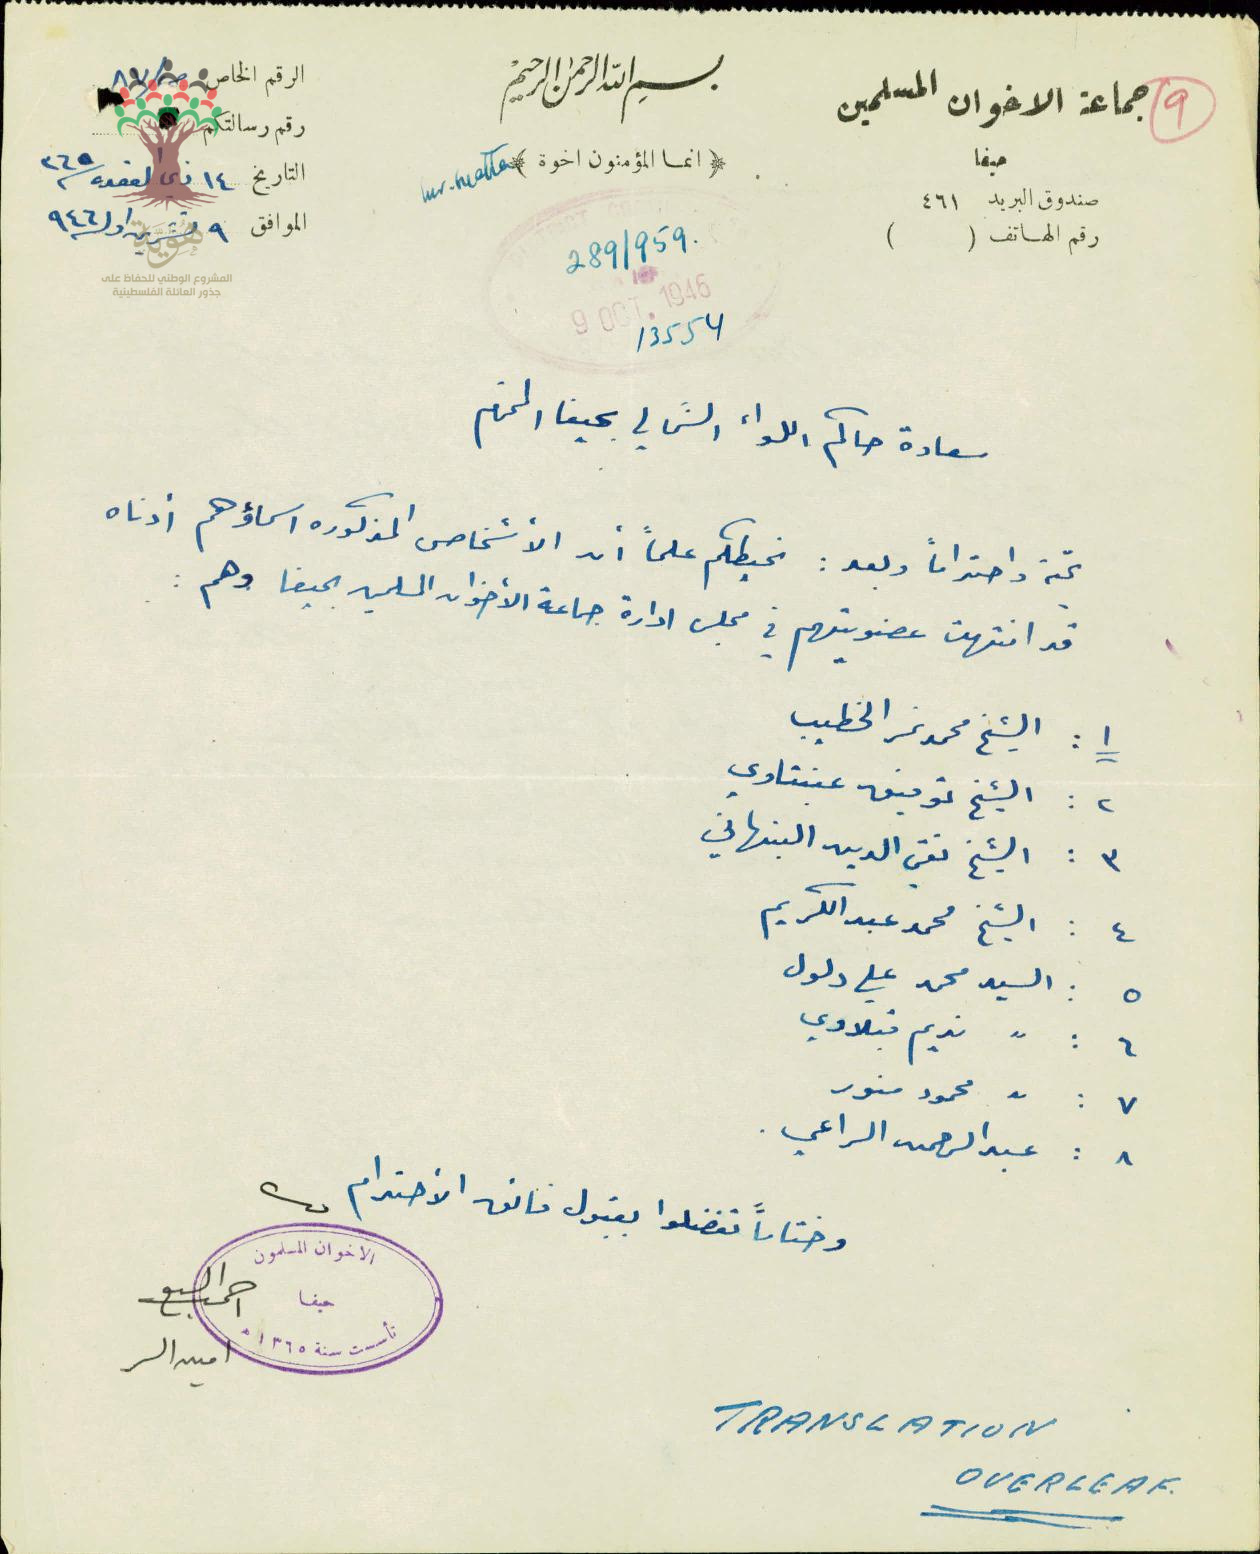 جماعة الاخوان المسلمين
9
حيفا
صندوق البريد ٤٦١
رقم الهاتف ( )
بسم الله الرحمن الرحيم
﴿ انما المؤمنون اخوة ﴾
289/959.
9 OCT. 1946
13554
الرقم الخاص
رقم رسالتكم
التاريخ ١٤ ذي القعدة ٣٦٥
الموافق ٩ تشرين اول ٩٤٦
هوية
المشروع الوطني للحفاظ على
جذور العائلة الفلسطينية
سعادة حاكم اللواء الشمالي بحيفا المحترم
تحية واحتراماً وبعد : نحيطكم علماً أن الأشخاص المذكوره اسماؤهم أدناه
قد انتهت عضويتهم في مجلس ادارة جماعة الأخوان المسلمين بحيفا وهم :
١ : الشيخ محمد نمر الخطيب
٢ : الشيخ توفيق عنبتاوي
٣ : الشيخ تقي الدين النبهاني
٤ : الشيخ محمد عبد الكريم
٥ : السيد محمد علي دلول
٦ : " نديم قبلاوي
٧ : " محمود منور
٨ : عبد الرحمن الراعي .
وختاماً تفضلوا بقبول فائق الأحترام
الاخوان المسلمون
حيفا
تأسست سنة ١٣٦٥ هـ
احمد السبع
امين السر
TRANSLATION
OVERLEAF.